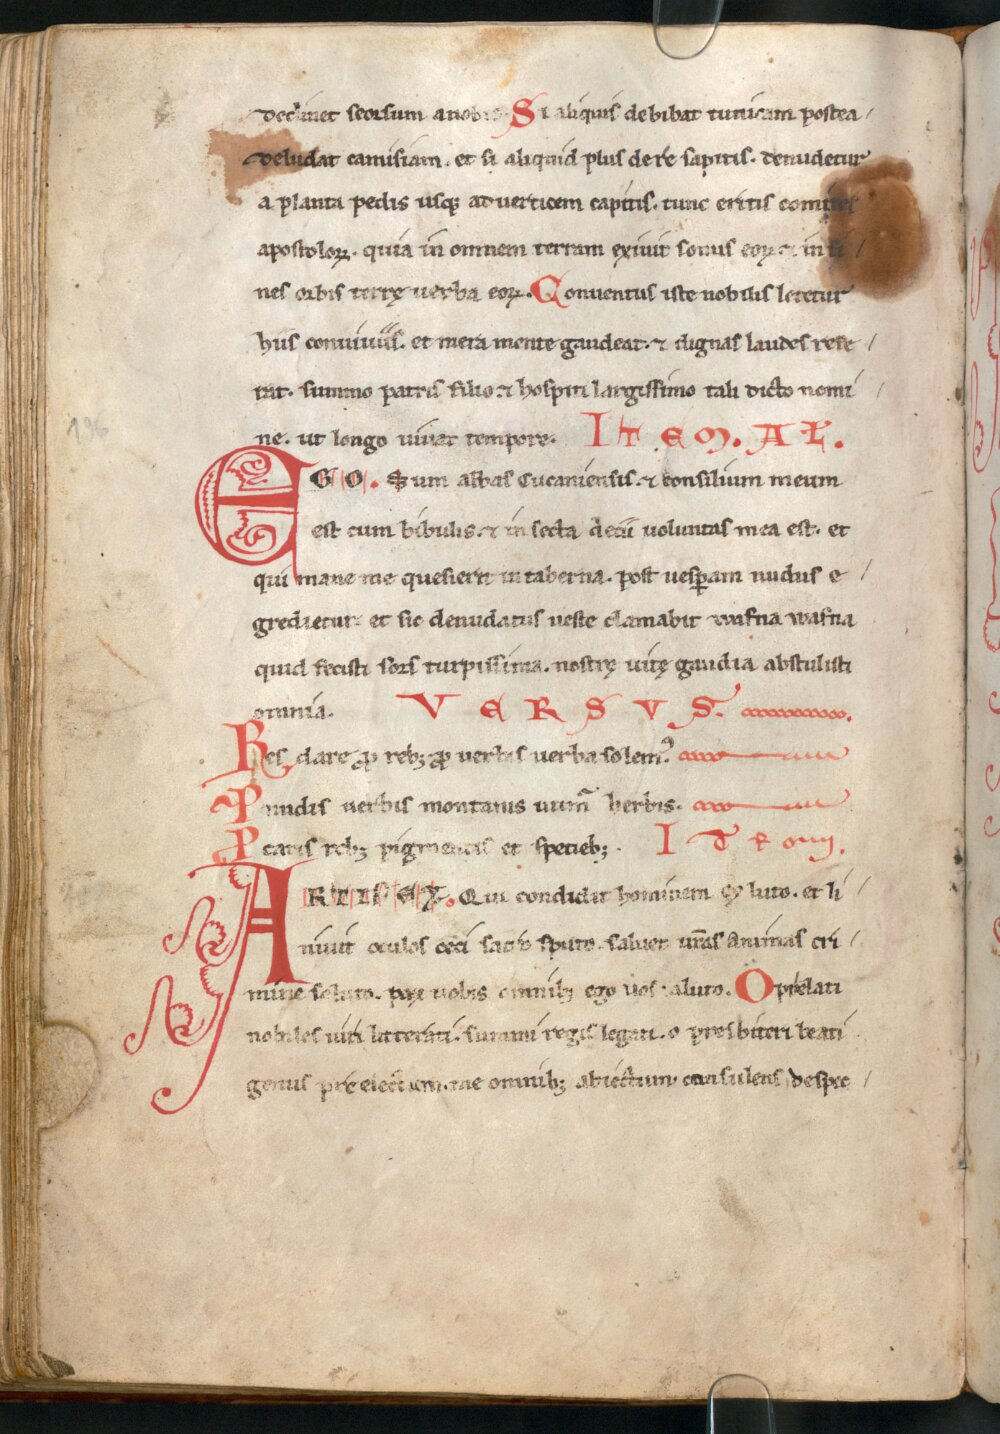 declinet seorsum a nobis. Si aliquis debibat tunicam postea
deludat camisiam. et si aliquid plus de re sapitis. denudetur
a planta pedis usq; ad uerticem capitis. tunc eritis comites
apostoloꝝ. quia in omnem terram exiuit sonus eoꝝ ⁊ in fi
nes orbis terrę uerba eoꝝ. Conuentus iste nobilis letetur
hus conuiuiis. et mera mente gaudeat. ⁊ dignas laudes refe
rat. summo patris filio ⁊ hospiti largissimo tali dicto nomi
ne. ut longo uiuat tempore. ITEM. AL.
EGO. sum abbas Cucaniensis ⁊ consilium meum
est cum bibulis. ⁊ in secta decii uoluntas mea est. et
qui mane me quesierit in taberna. post uesꝑam nudus e
gredietur. et sic denudatus ueste clamabit wafna wafna
quid fecisti sors turpissima. nostrę uitę gaudia abstulisti
omnia. VERSVS.
Res dare ꝓ reb; ꝓ uerbis uerba solemꝰ.
P nudis uerbis montanis utimur herbis.
P caris reb; pigmentis et specieb;. IT
ARTIFEX. Qui condidit hominem ex luto. et li
niuit oculos ceci sacro sputo. saluet uras animas cri
mine soluto. pax uobis omnib; ego uos saluto. O prelati
nobiles uiri litterati. summi regis legati. o presbiteri beati
genus preelectum. me omnib; abiectum consulens despec